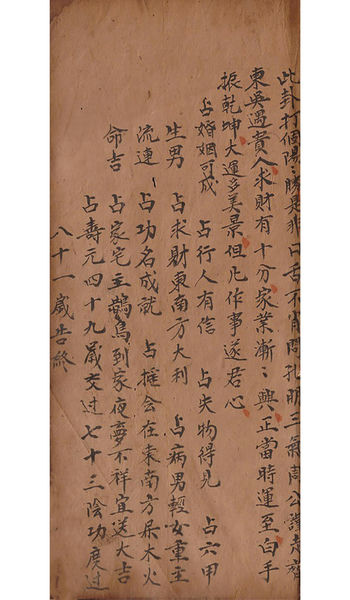 此卦打個陽々勝是非口舌不宵問孔明三氣周公謹走齊
東吳遇貴人求財有十分家業漸々興正當時運至白手
振乾坤大運多美景但凡作事遂君心
占婚姻可成 占行人有信 占失物得見 占六甲
生男 占求財東南方大利 占病男輕女重主
流連 占功名成就 占摧会在東南方呆木火
命吉 占家宅主鵲鳥到家夜夢不祥宜送大吉
占壽元四十九歲交过七十三陰功度过
八十一歲告終